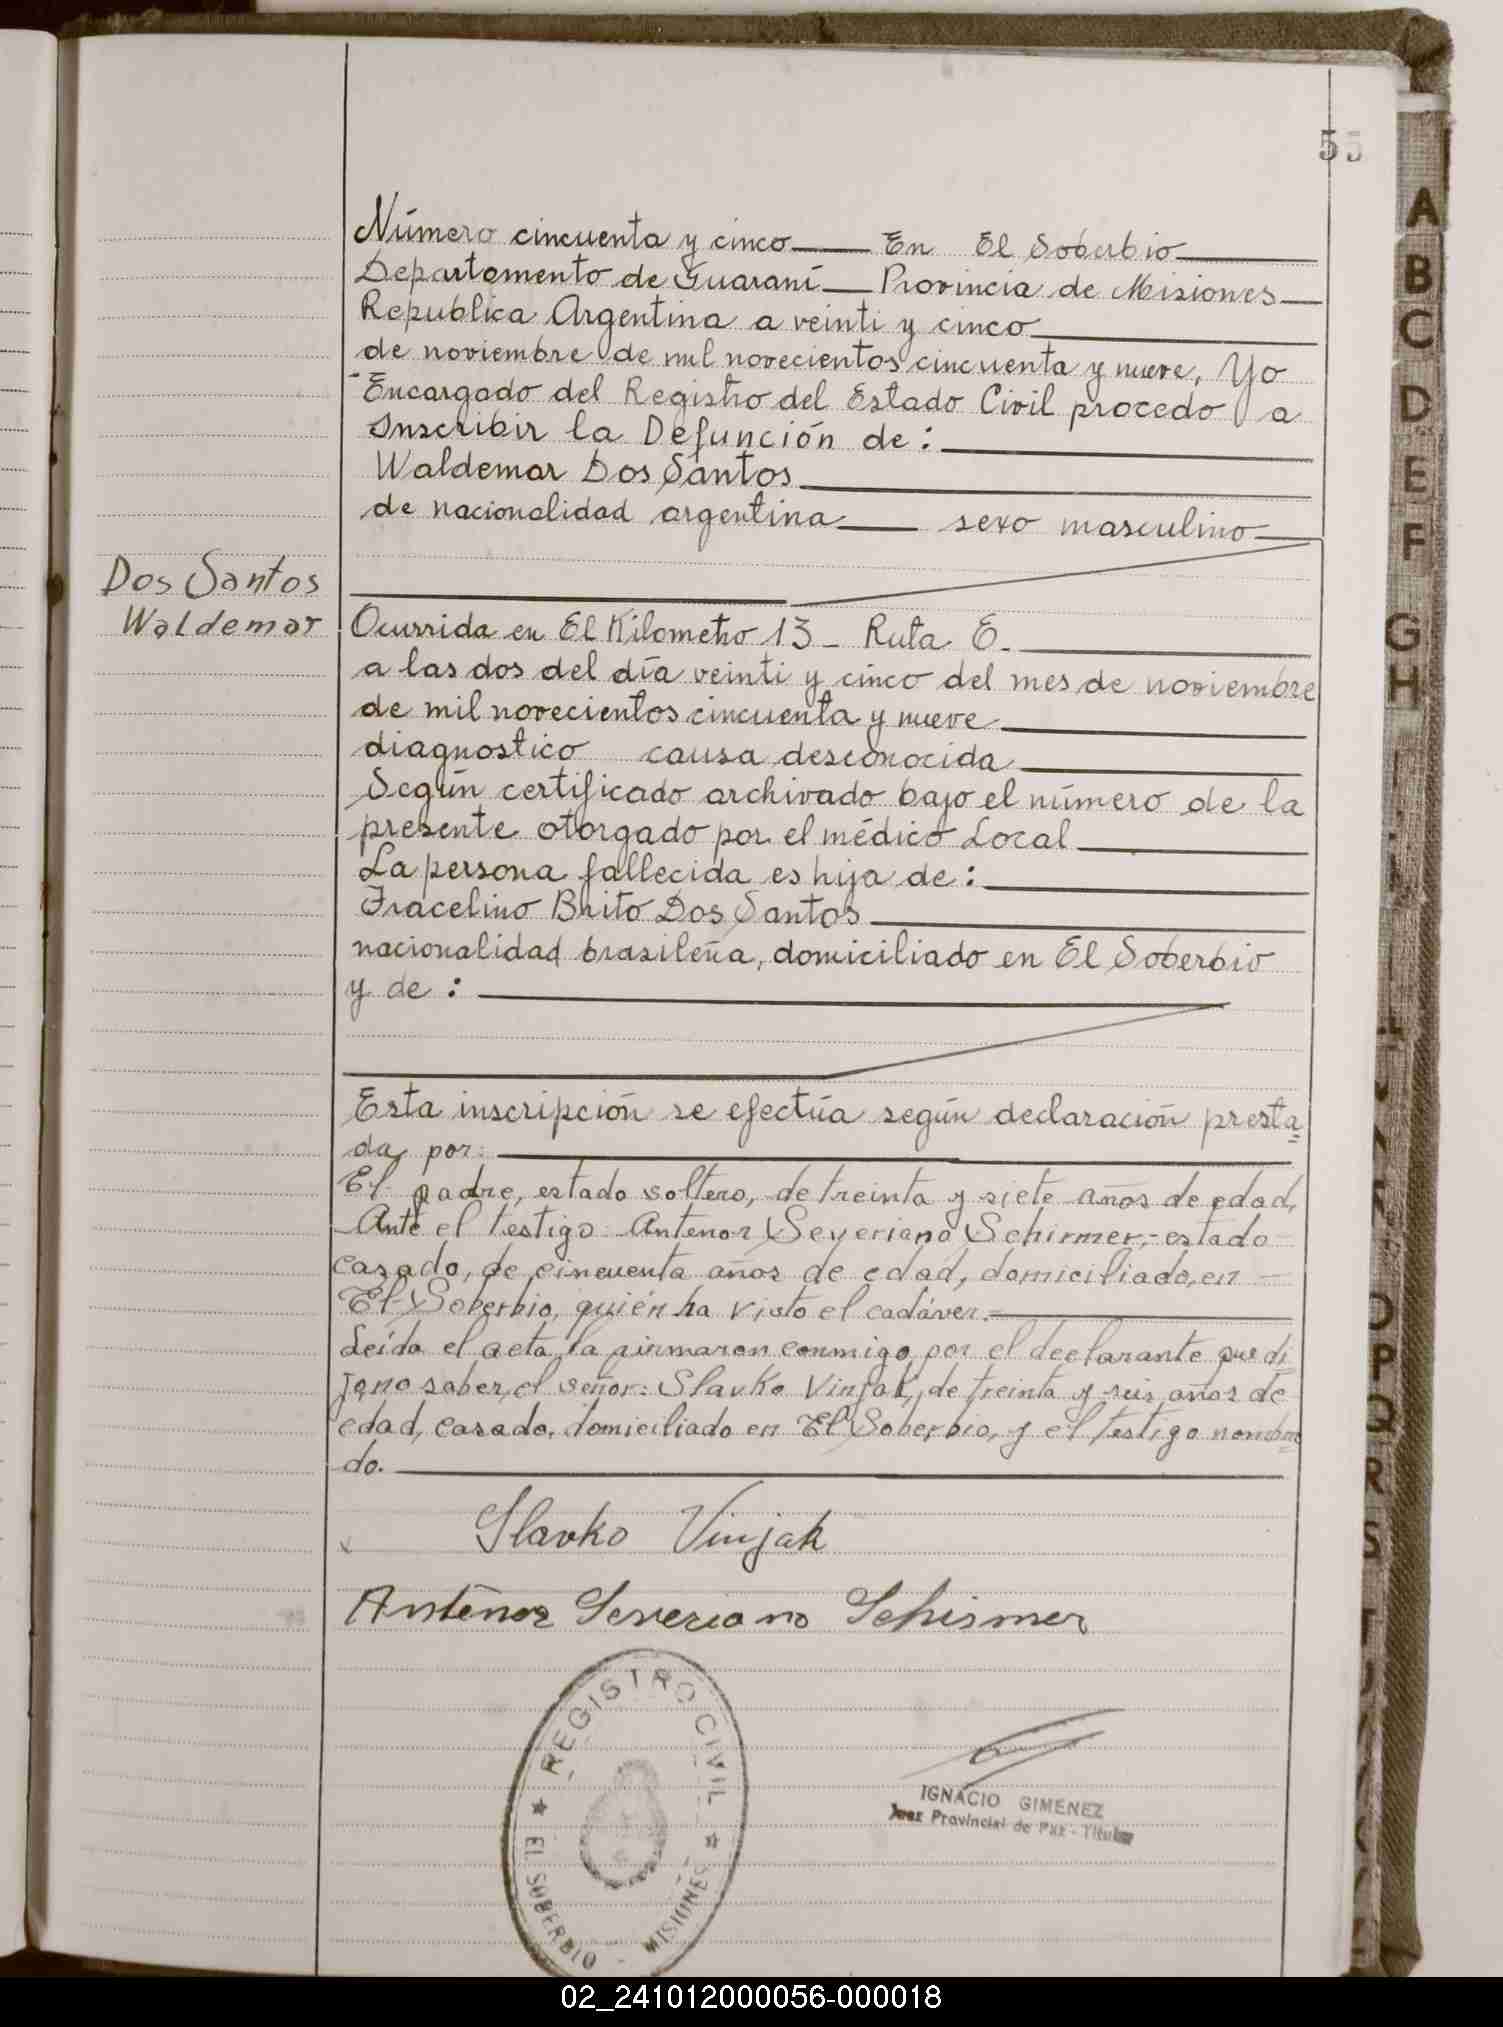 55
Número cincuenta y cinco En El Soberbio
Departamento de Guaraní Provincia de Misiones
Republica Argentina a veinti y cinco
de noviembre de mil novecientos cincuenta y nueve, Yo
Encargado del Registro del Estado Civil procedo a
Inscribir la Defunción de:
Waldemar Dos Santos
de nacionalidad argentina sexo masculino
Dos Santos
Waldemar
Ocurrida en El Kilometro 13 - Ruta E.
a las dos del día veinti y cinco del mes de noviembre
de mil novecientos cincuenta y nueve
diagnostico causa desconocida
Según certificado archivado bajo el número de la
presente otorgado por el médico Local
La persona fallecida es hija de:
Fracelino Brito Dos Santos
nacionalidad brasileña, domiciliado en El Soberbio
y de:
Esta inscripción se efectúa según declaración presta=
da por:
El padre, estado soltero, de treinta y siete años de edad,
Ante el testigo: Antenor Severiano Schirmer,- estado
casado, de cincuenta años de edad, domiciliado, en -
El Soberbio, quién ha visto el cadáver.=
Leída el acta, la firmaron conmigo por el declarante que di
jo no saber, el señor: Slavko Vinjak, de treinta y seis años de
edad, casado, domiciliado en El Soberbio, y el testigo nombra=
do.
Slavko Vinjak
Antenor Severiano Schirmer
REGISTRO CIVIL
EL SOBERBIO - MISIONES
IGNACIO GIMENEZ
Juez Provincial de Paz - Titular
A
B
C
D
E
F
G
H
O
P
Q
R
S
T
U
02_241012000056-000018